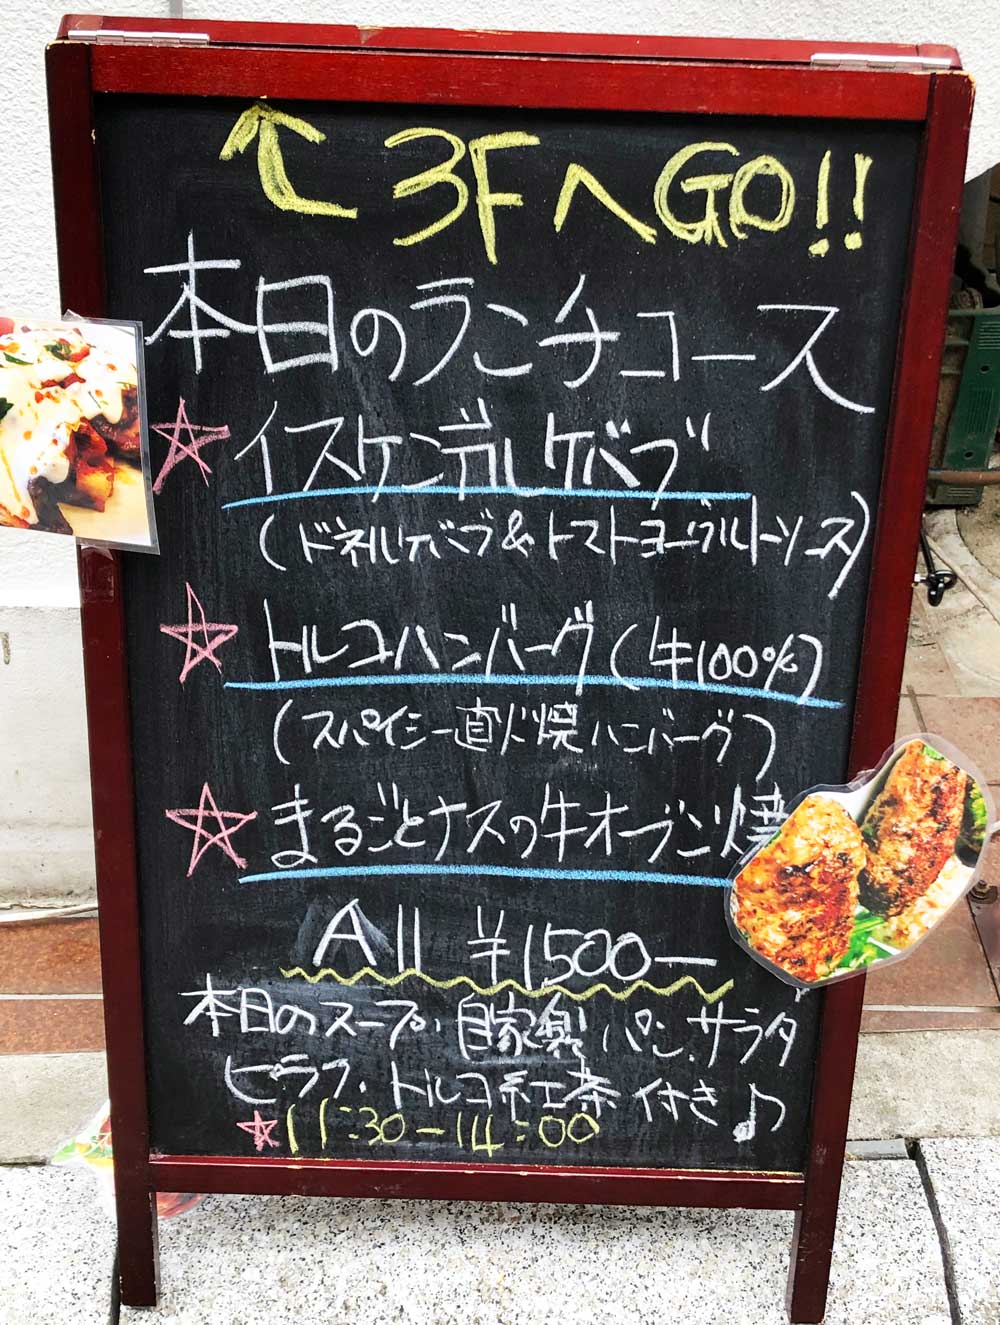 3FへGO!!
本日のランチコース
イスケンデルケバブ
(ドネルケバブ&トマトヨーグルトソース)
トルコハンバーグ(牛100%)
(スパイシー直火焼ハンバーグ)
まるごとナスの牛オーブン焼
All ¥1500ー
本日のスープ、自家製パン、サラダ
ピラフ、トルコ紅茶付き♪
11:30-14:00